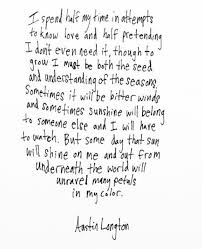 I spend half my time in attempts
to know love and half pretending
I don't even need it, though to
grow I must be both the seed
and understanding of the seasons.
Sometimes it will be bitter winds
and sometimes sunshine will belong
to someone else and I will have
to watch. But some day that sun
will shine on me and out from
underneath the world will
unravel many petals
in my color.
Austin Longton